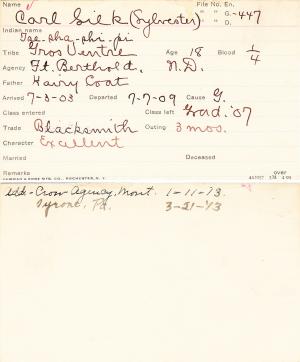 Name File No. En.
Carl Silk (Sylvester) G-447
D.
Indian name
Tge-sha-phi-pi
Tribe Gros Ventre Age 18 Blood 1/4
Agency Ft. Berthold, N.D.
Father Hairy Coat
Arrived 7-3-03 Departed 7-7-09 Cause G.
Class entered Class left Grad. '07
Trade Blacksmith Outing 3 mos.
Character Excellent
Married Deceased
over
Crow Agency, Mont. 1-11-13.
Tyrone, Pa. 3-21-13